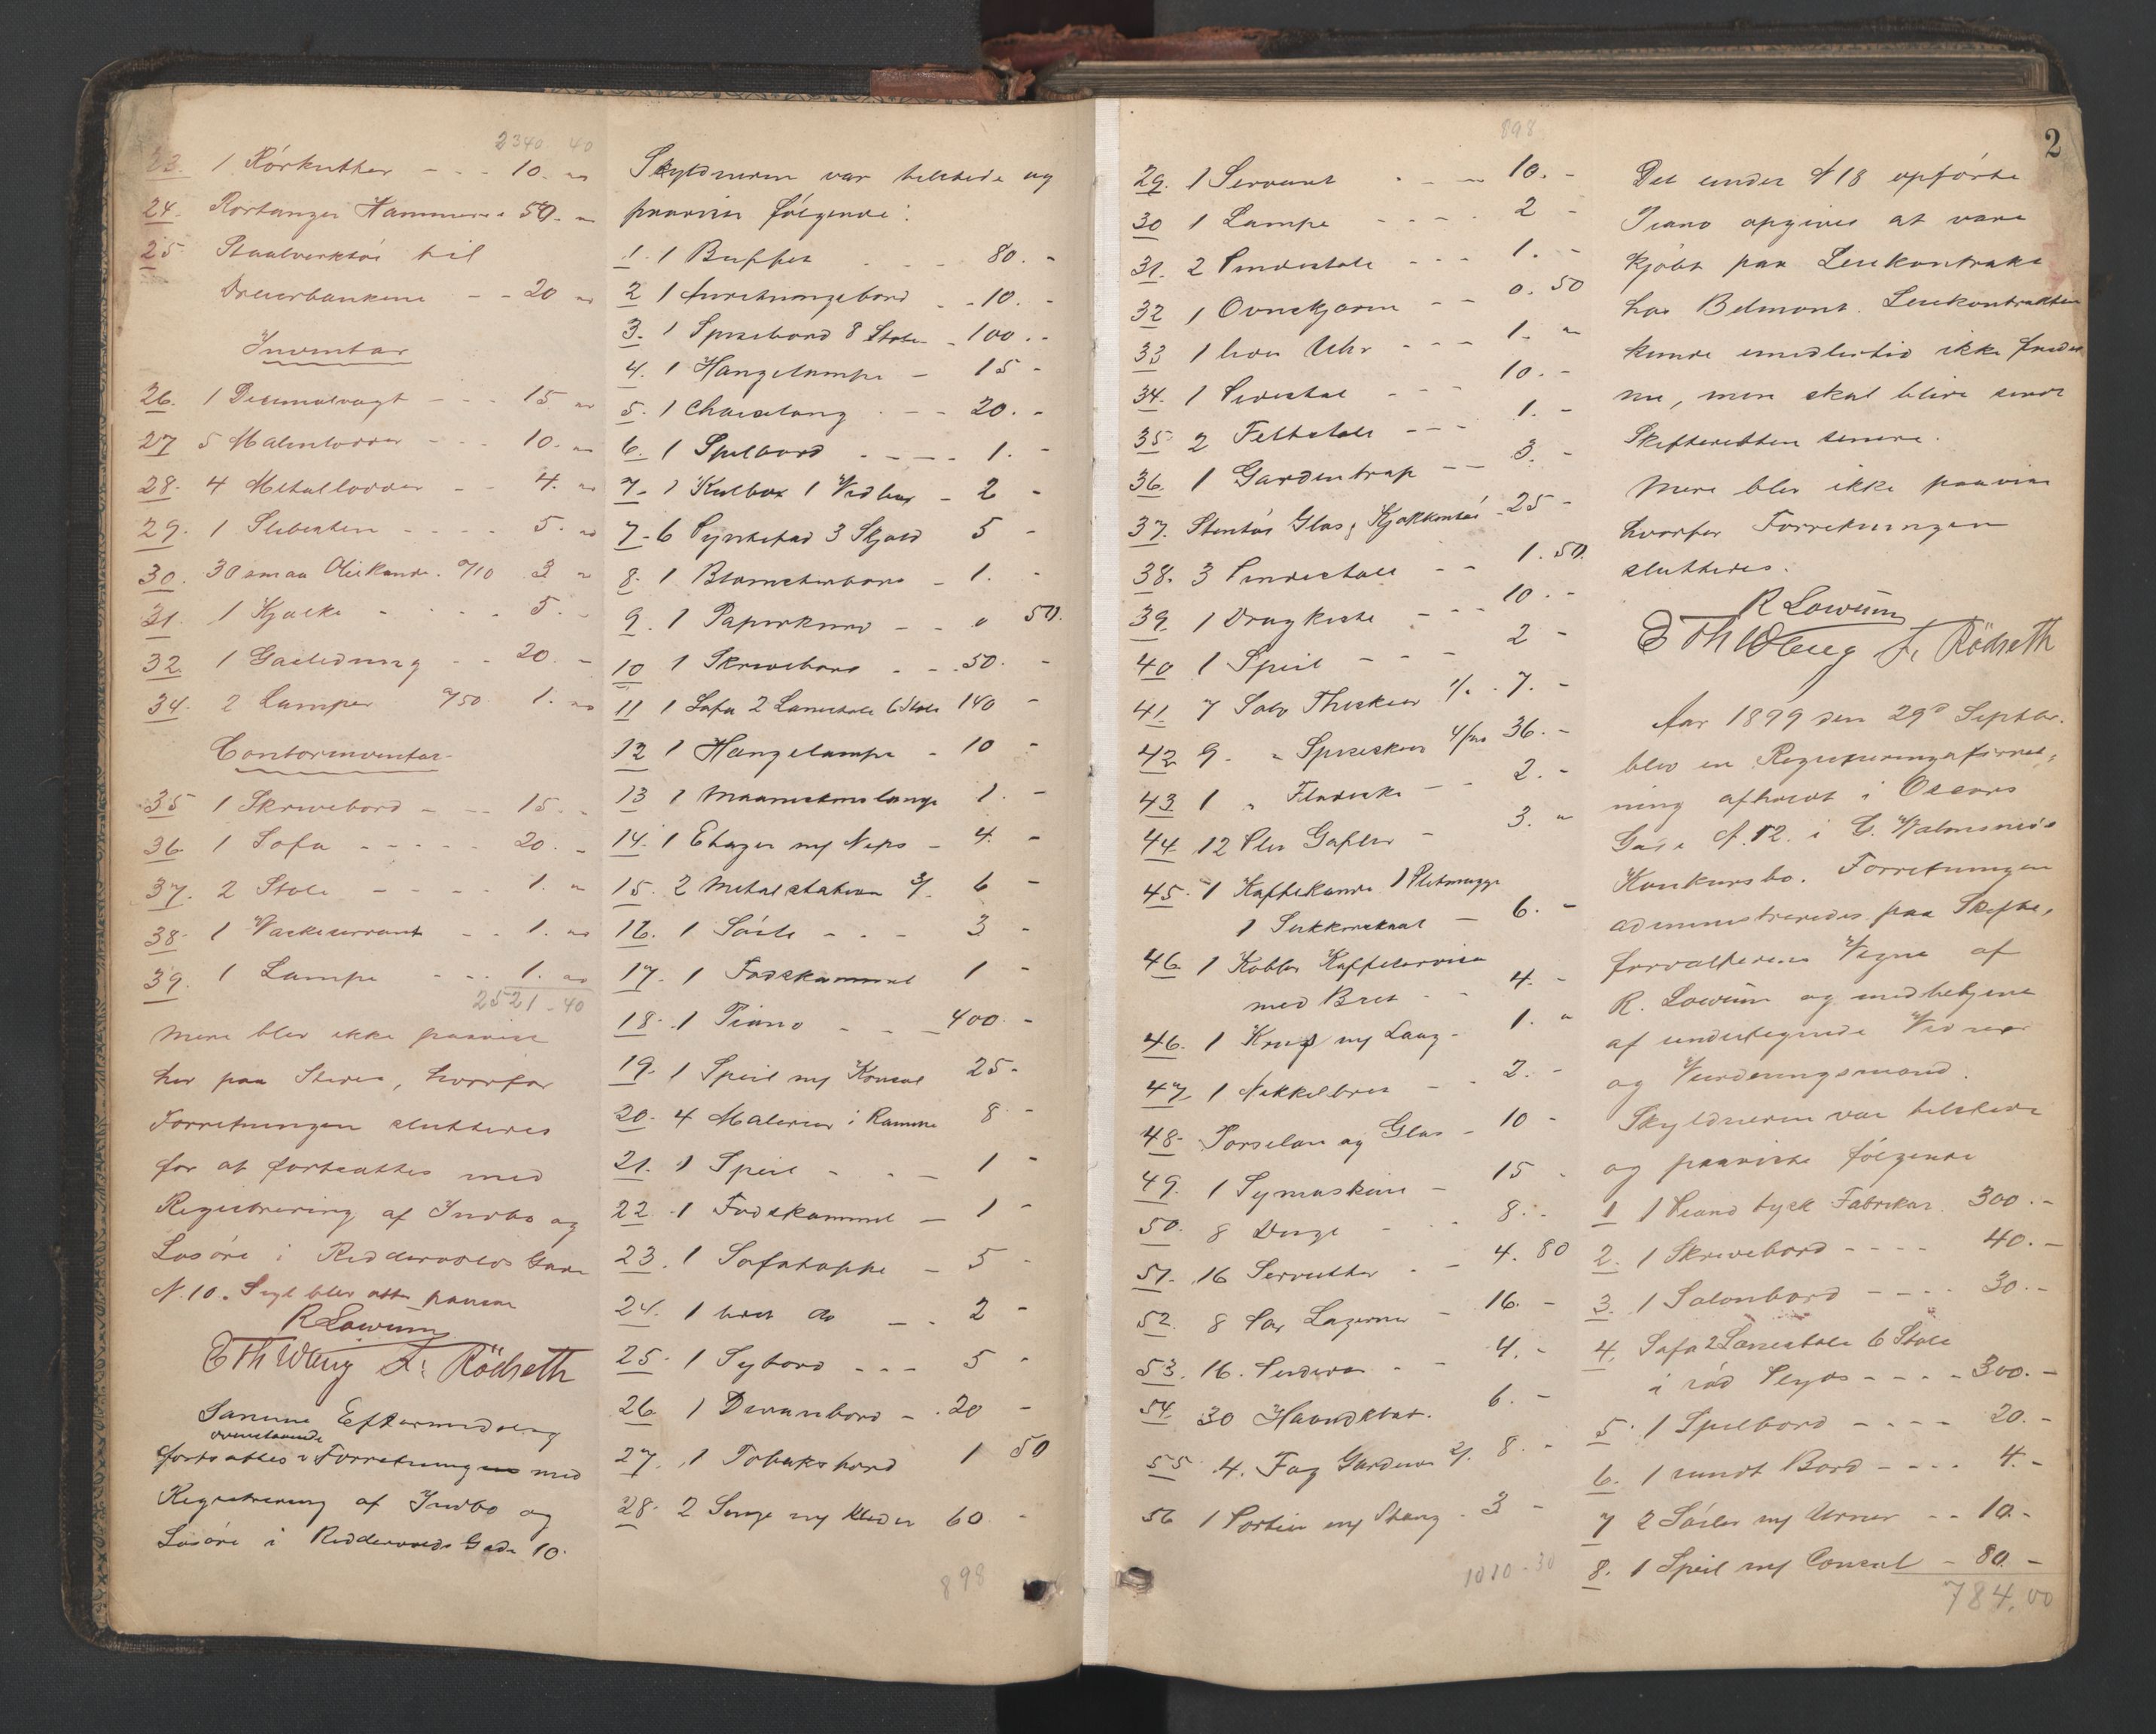 2340. 40
23. 1 Rørkutter - - - 10. "
24. Rørtanger Hammere - 50. "
25 Staalverktøi til
Dreierbænkene - - 20 "
Inventar
26. 1 Decimalvægt - - - 15 "
27 5 Malmlodder - - - 10. "
28. 4 Metallodder - - 4. "
29. 1 Slibesten - - - - 5. "
30. 30 smaa Oliekander. "/10 3 "
31. 1 Kjælke - - - - 5. -
32. 1 Gasledning - - 20. -
34. 2 Lamper "/50 1. "
Contorinventar
35 1 Skrivebord - - - 15. -
36 1 Sofa - - - - - 20. -
37. 2 Stole - - - - 1. "
38. 1 Vaskeservant - - 1. "
39. 1 Lampe - - - 1. "
2521 - 40
Mere blev ikke paavist
her paa Stedet, hvorfor
Forretningen sluttedes
for at fortsættes med
Registrering af Indbo og
Løsøre i Riddervolds Gade
N. 10.
R Løwum
E Th Wang F. Rödseth
Samme Eftermiddag
fortsattes ovenstaaende Forretning med
Registrering af Indbo og
Løsøre i Riddervolds Gade 10.
Skyldneren var tilstede og
paaviste følgende:
1. 1 Buffet - - - 80. -
2 1 Anretningsbord - - 10. -
3. 1 Spisebord 8 Stole - 100. -
4. 1 Hængelampe - 15 -
5. 1 Chaiselong - - - 20. -
6. 1 Spilbord - - - - 1. -
7. 1 Kulbox 1 Vedkas - 2 -
7. 6 Pyntefad 3 Skjold 5 -
8. 1 Blomsterbord - 1. -
9. 1 Papirkurv - - 0 50.
10 1 Skrivebord - - 50. -
11 1 Sofa 2 Lænestole 6 Stole 140 -
12 1 Hængelampe - 10 -
13 1 1. -
14. 1 Etager m/ Nips - 4. -
15. 2 Metalstatuer 3/. 6 -
16. 1 Søile - - - 3 -
17. 1 Fodskammel 1 -
18. 1 Piano - - - 400. -
19. 1 Speil m/ Konsol 25 -
20. 4 Malerier i Ramme 8 -
21. 1 Speil - - - 1 -
22. 1 Fodskammel - 1 -
23. 1 Sofatæppe - 5 -
24. 1 lidet do - - 2 -
25. 1 Sybord - - - 5 -
26 1 Divanbord - - 20 -
27. 1 Tobaksbord 1 50
28. 2 Senge m/ Klæder 60 -
898
898
29. 1 Servant - - - 10. -
30 1 Lampe - - - - 2 -
31. 2 Pindestole - - - 1. -
32 1 Ovnskjærm - - 0. 50
33 1 liden Uhr - - - 1. "
34. 1 - - - 10. -
35 2 Feltstole - - - 1. -
36 1 Gardintrap - - 3. -
37. Stentøi Glas, Kjøkkentøi 25 -
38. 3 Pindestole - - 1. 50.
39. 1 Dragkiste - - - 10. -
40 1 Speil - - - 2 -
41. 7 Sølv Theskeer 1/. 7. -
42 9 - " Spiseskeer 4/ 36. -
43. 1 " Flødeske - - 2. -
44. 12 Plet Gafler - 3. "
45. 1 Kaffekande 1 Fløtmugge
1 Sukkerskaal - 6. -
46. 1 Kobber Kaffeservice
med Bret - - 4. -
46. 1 Krus m/ Laag - 1. "
47. 1 Nikkelbret - - 2. -
48. Porselæn og Glas - 10 -
49. 1 Symaskine - 15 -
50. 8 Duge - - - 8. -
51. 16 Servietter - - 4. 80
52. 8 Par Lagener - 16. -
53. 16. - - 4. -
54. 30 Haandklær. 6. -
55 4. Fag Gardiner 2/. 8. -
56 1 Portier m/ Stang - 3 -
1010 - 30
2
Det under N 18 opførte
Piano opgives at være
kjøbt paa Leiekontrakt
hos Belmont. Leiekontrakten
kunde imidlertid ikke findes
nu, men skal blive sendt
Skifteretten senere.
Mere blev ikke paavist
hvorfor Forretningen
sluttedes.
R Løwum
E Th Wang F. Rödseth
Aar 1899 den 29d Septbr.
blev en Registreringsforret-
ning afholdt i Oscars
Gade N. 12. i C. Malmsneds
Konkursbo. Forretningen
administreredes paa Skifte-
forvalterens Vegne af
R. Løwum og medbetjent
af undertegnede Vidner
og Vurderingsmænd.
Skyldneren var tilstede
og paaviste følgende
1 1 Piano tysk Fabrikat. 300. -
2. 1 Skrivebord - - - - 40. -
3. 1 Salonbord - - - - 30. -
4. Sofa 2 Lænestole 6 Stole
i rød Plyds - - - - 300. -
5. 1 Spilbord - - - - 20. -
6. 1 rundt Bord - - - - 4. -
7 2 Søiler m/ Urner - - 10. -
8. 1 Speil m/ Consol - 80. -
784,00